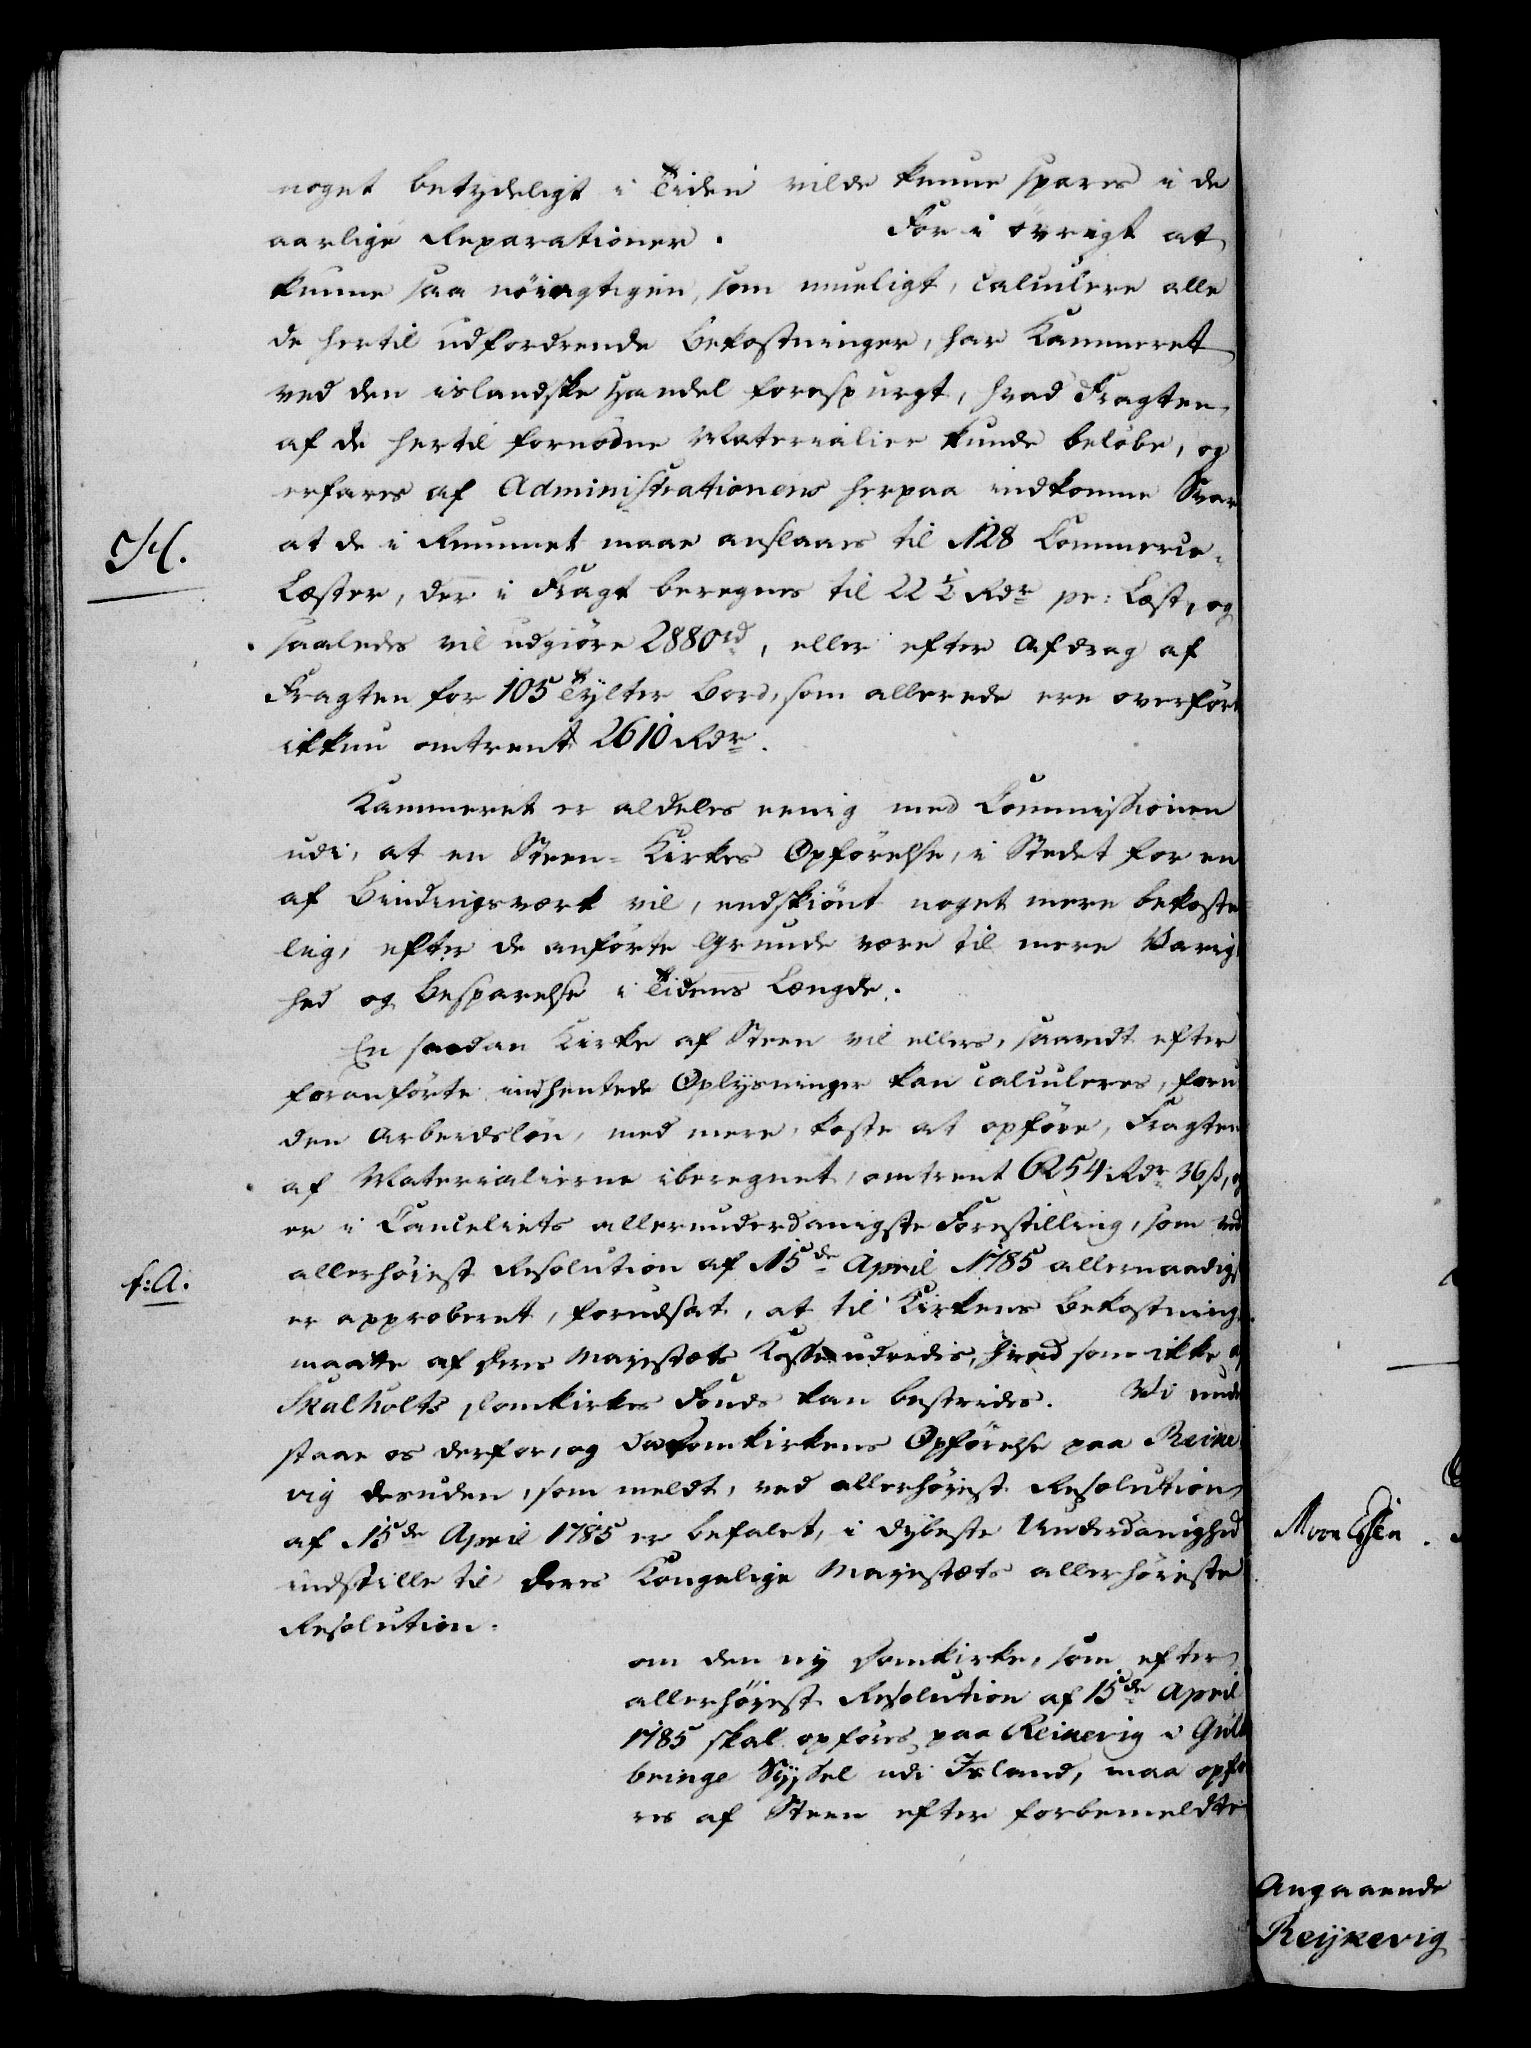 noget betydeligt i Tiden vilde kunne spares i de
aarlige Reparationer. For i övrigt at
kunne saa nöiagtigen, som mueligt, calculere alle
de hertil udfordrende Bekostninger, har Kammeret
ved den islandske Handel forespurgt, hvad Fragten
af de hertil fornödne Materialier kunde belöbe, og
erfares af Administrationens herpaa indkomne Svar
H.
at de i Rummet maae anslaaes til 128 Commerce-
Læster, der i Fragt beregnes til 22 1/2 Rdr pr: Læst, og
saaledes vil udgiöre 2880 rd, eller efter Afdrag af
Fragten for 105 Tylter Bord, som allerede ere overför
ikkun omtrent 2610 Rdr.
Kammeret er aldeles eenig med Commissionen
udi, at en Steen-Kirkes Opförelse, i Stedet for en
af Bindingsværk vil, endskiönt noget mere bekoste
lig, efter de anförte Grunde være til mere Varig
hed og Besparelse i Tidens Længde.
En saadan Kirke af Steen vil ellers, saavidt efter
foranförte indhentede Oplysninger kan calculeres, foru
den Arbeidslön, med mere, koste at opföre, Fragten
af Materialierne iberegnet, omtrent 6254 Rdr 36 ß, og
er i Cancelliets allerunderdanigste Forestilling, som ved
f: A.
allerhöiest Resolution af 15de April 1785 allernaadigst
er approberet, forudsat, at til Kirkens Bekostning
maatte af Deres Majestæts Kasse udredes, hvad som ikke af
Skalholts Domkirkes Fonds kan bestrides. Vi unde
staae os derfor, og da Domkirkens Opförelse paa Reike
vig desuden, som meldt, ved allerhöjest Resolution
af 15de April 1785 er befalet, i dybeste Underdanighed
indstille til Deres Kongelige Majestæts allerhöieste
Resolution.
om den ny Domkirke, som efter
allerhöjest Resolution af 15de April
1785 skal opföres paa Reikevig i Guld
bringe Syssel udi Island, maa opfö
res af Steen efter forbemeldte
Angaaende
Reijkevig